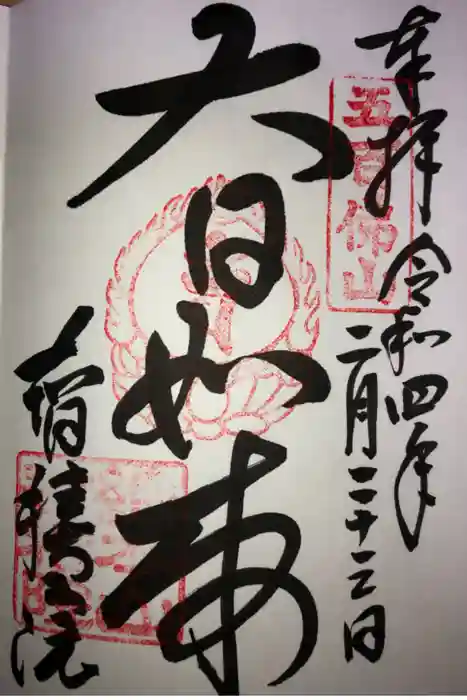 奉拝
令和四年
二月二十三日
五百佛山
大日如来
根積院